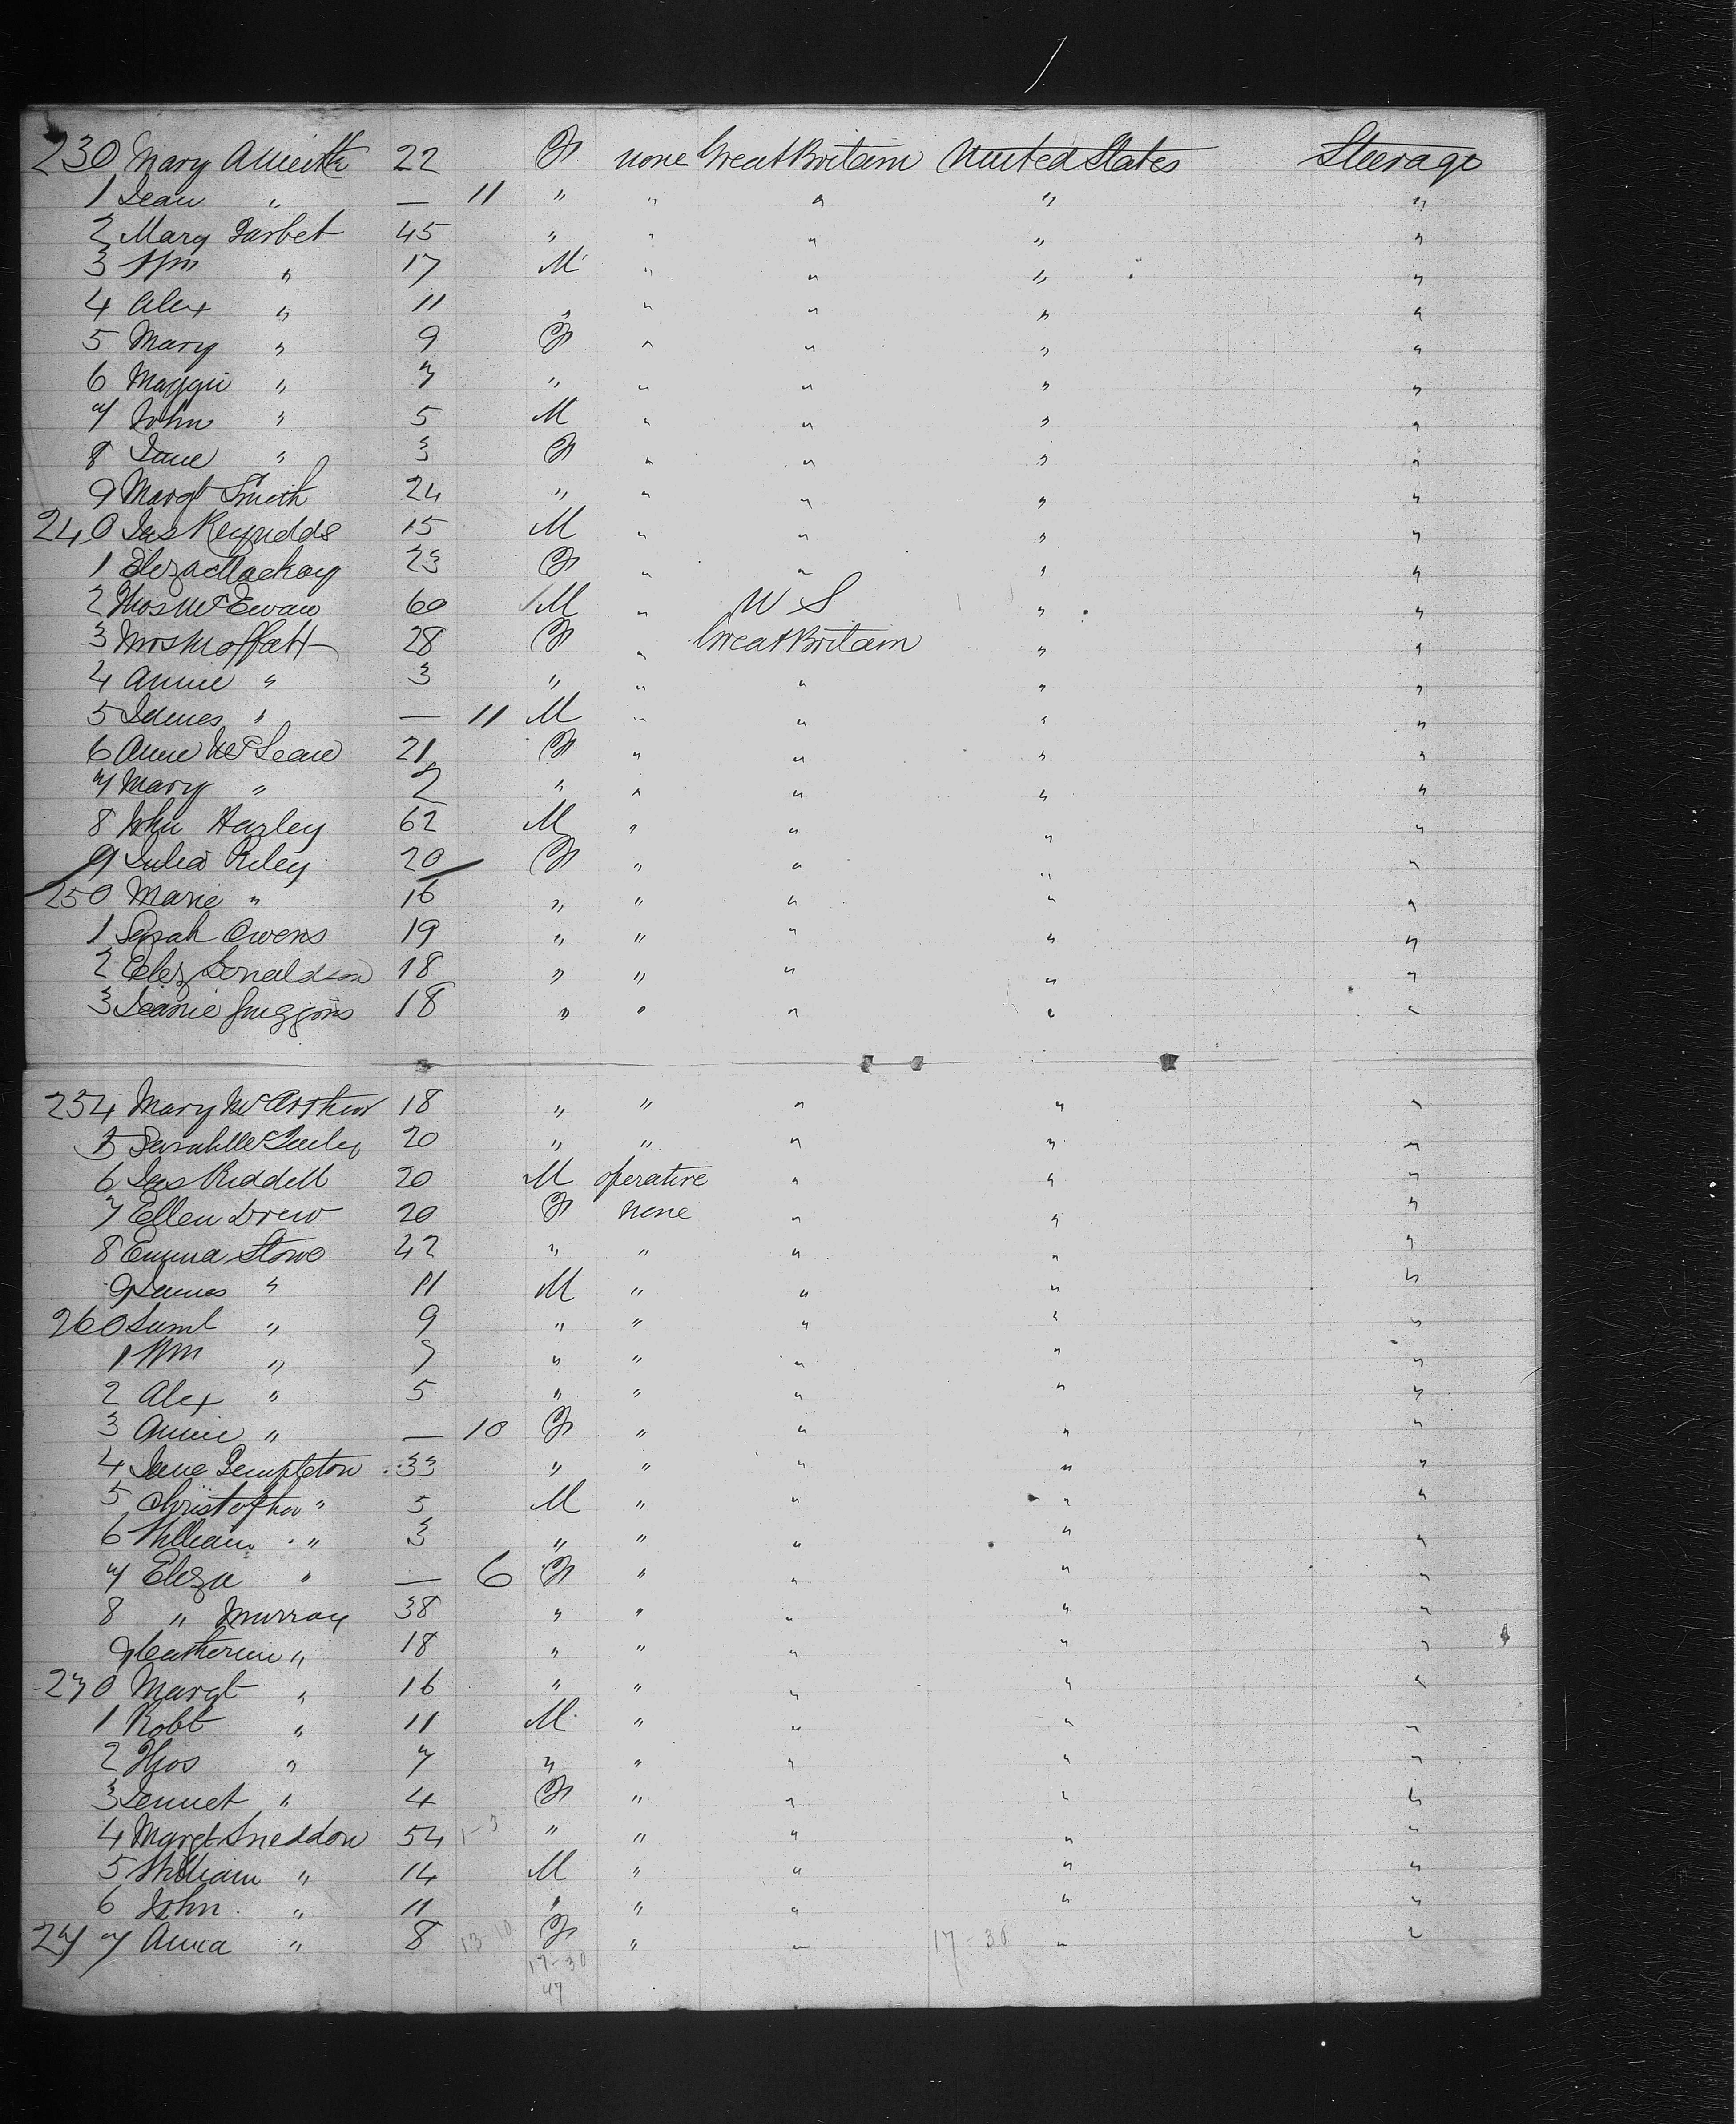 230 Mary 22 F none Great Britain United States Steerage
1 Jean " — 11 " " " " "
2 Mary Tarbet 45 " " " " "
3 Wm " 17 M " " " "
4 Alex " 11 " " " " "
5 Mary " 9 F " " " "
6 Maggie " 7 " " " " "
7 John " 5 M " " " "
8 Jane " 3 F " " " "
9 Margt Smith 24 " " " " "
240 Jas Reynolds 15 M " " " "
1 Eliza Mackay 23 F " " " "
2 Thos McEwan 60 M " U S " "
3 Mrs Moffatt 28 F " Great Britain " "
4 Annie " 3 " " " " "
5 James " — 11 M " " " "
6 Anne McLean 21 F " " " "
7 Mary " 2 " " " " "
8 John Harley 62 M " " " "
9 Julia Riley 20 F " " " "
250 Marie " 16 " " " " "
1 Sarah Owens 19 " " " " "
2 Eliz Donaldson 18 " " " " "
3 Jeanie 18 " " " " "
254 Mary McArthur 18 " " " " "
5 Sarah 20 " " " " "
6 Jas Riddell 20 M operative " " "
7 Ellen Drew 20 F none " " "
8 Emma Stowe 42 " " " " "
9 James " 11 M " " " "
260 Saml " 9 " " " " "
1 Wm " 7 " " " " "
2 Alex " 5 " " " " "
3 Annie " — 10 F " " " "
4 Jane Templeton 33 " " " " "
5 Christopher " 5 M " " " "
6 William " 3 " " " " "
7 Eliza " — 6 F " " " "
8 " Murray 38 " " " " "
9 Catherine " 18 " " " " "
270 Margt " 16 " " " " "
1 Robt " 11 M " " " "
2 Thos " 7 " " " " "
3 Jennet " 4 F " " " "
4 Margt Sneddon 54 1-3 " " " " "
5 William " 14 M " " " "
6 John " 11 " " " " "
277 Anna " 8 13-10 F " " 17-30 " "
17-30
47